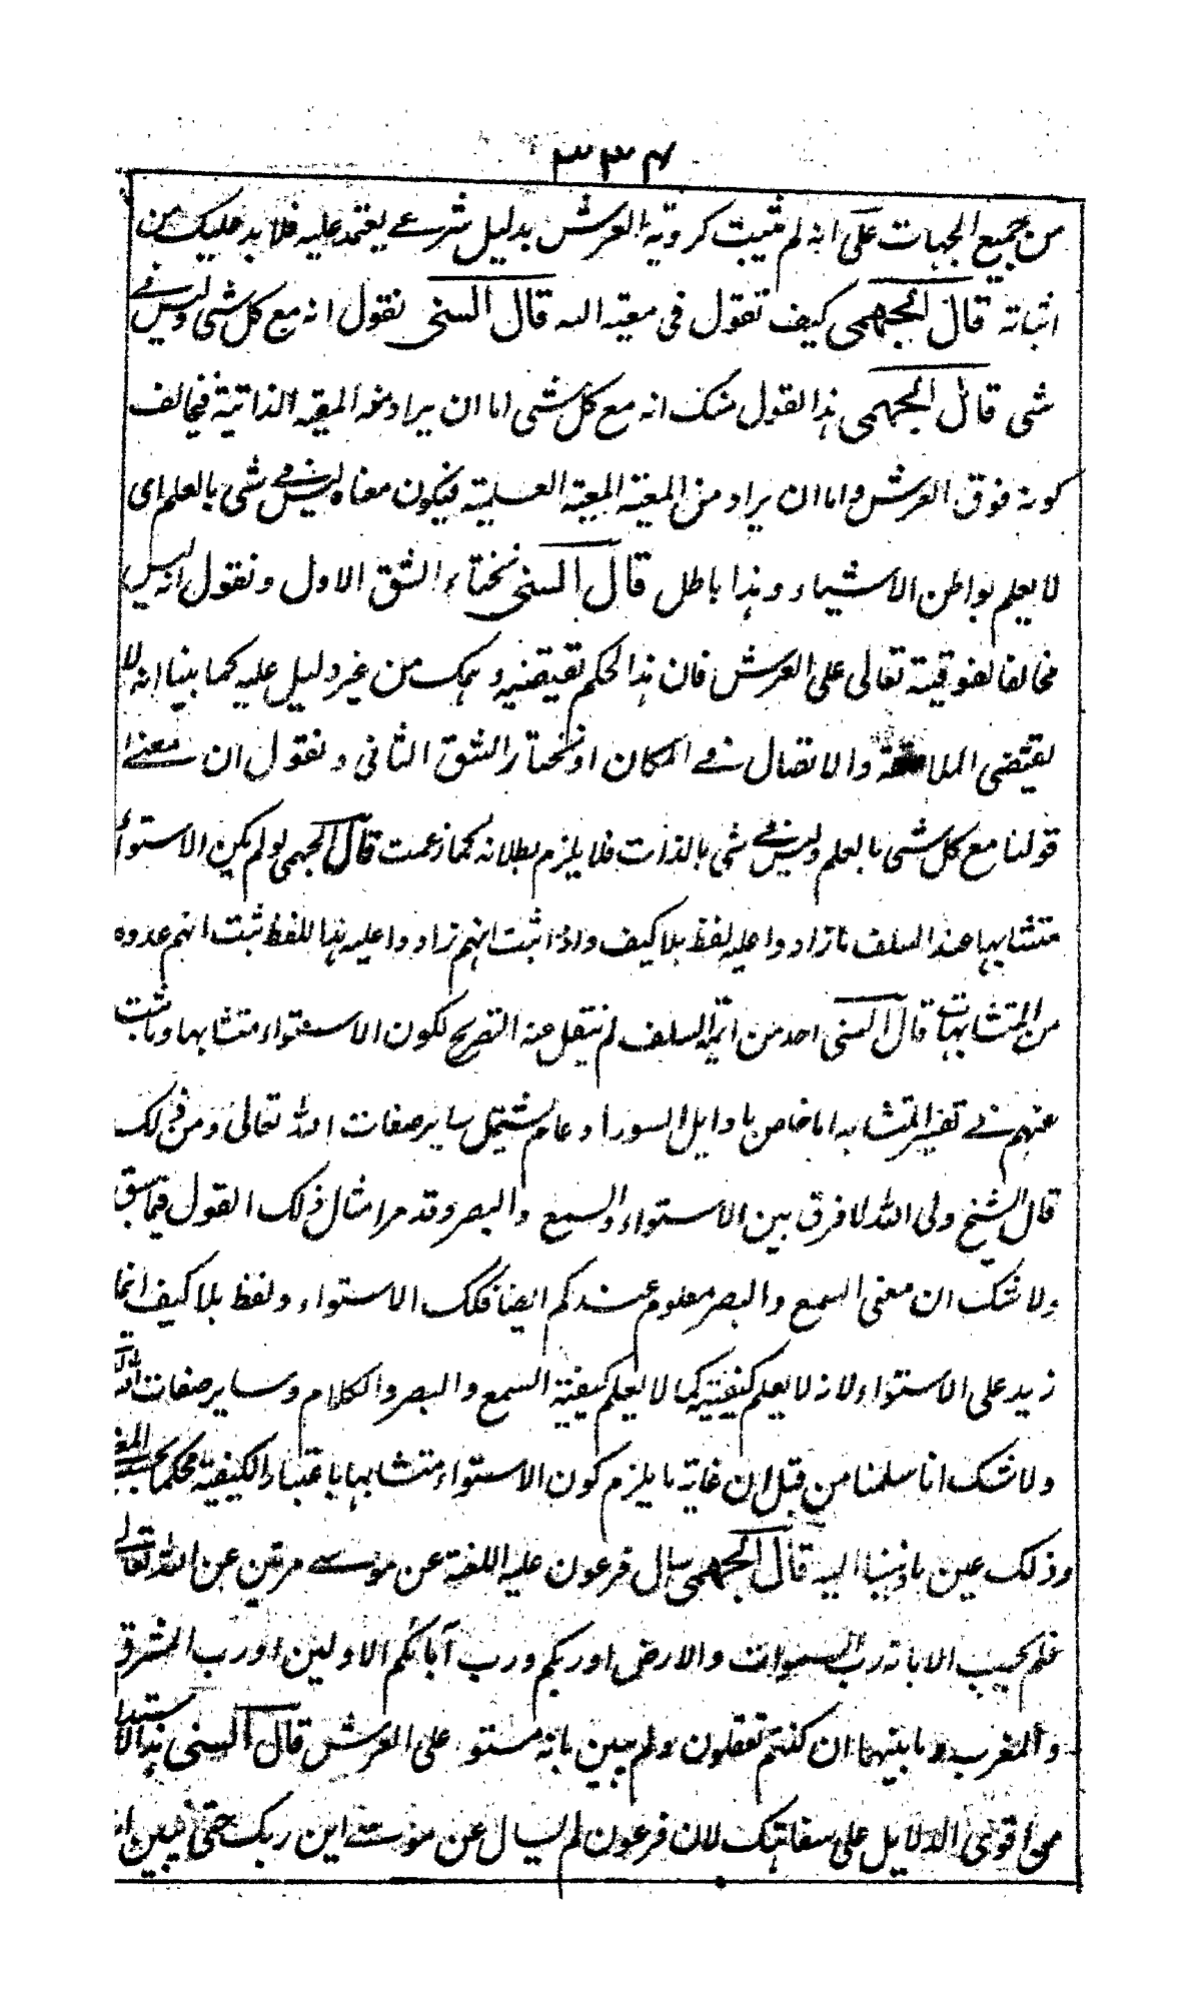 ٣٣٤
من جميع الجهات على انه لم يثبت كروية العرش بدليل شرعي يعتمد عليه فلا بد عليك من
اثباته قال الجهمى كيف تقول فى معية الله قال السنى نقول انه مع كل شى وليس فى
شى قال الجهمى هذا القول منك انه مع كل شى اما ان يراد منه المعية الذاتية فيخالف
كونه فوق العرش واما ان يراد من المعية المعية العلمية فيكون معناه ليس فى شى بالعلم اى
لا يعلم بواطن الاشياء وهذا باطل قال السنى نختار الشق الاول ونقول انه ليس
مخالفا لفوقيته تعالى على العرش فان هذا الحكم تقتضيه وهمك من غير دليل عليه كما بينا انه لا
يقتضى والاتصال فى المكان او نختار الشق الثانى ونقول ان معنى
قولنا مع كل شى بالعلم وليس فى شى بالذات فلا يلزم بطلانه كما زعمت قال الجهمى لو لم يكن الاستواء
متشابها عند السلف ما زادوا عليه لفظ بلا كيف واذا ثبت انهم زادوا عليه هذا اللفظ ثبت انهم عدوه
من المتشابهات قال السنى احد من ائمة السلف لم ينقل عنه التصريح لكون الاستواء متشابها وما ثبت
عنهم فى تفسير المتشابه اما خاص باوايل السور او عام يشتمل ساير صفات الله تعالى ومن ذلك
قال الشيخ ولى الله لا فرق بين الاستواء والسمع والبصر وقد مر امثال ذلك القول فيما سبق
ولا شك ان معنى السمع والبصر معلوم عندكم ايضا فكذلك الاستواء ولفظ بلا كيف انما
زيد على الاستواء لانه لا يعلم كيفيته كما لا يعلم كيفية السمع والبصر والكلام وساير صفات الله
ولا شك انا سلمنا من قبل ان غاية ما يلزم كون الاستواء متشابها باعتبار الكيفية محكما بحسب المعنى
وذلك عين ما ذهبنا اليه قال الجهمى سال فرعون عليه اللعنة عن موسى مرتين عن الله تعالى
فلم يجيب الا بانه رب السموات والارض او ربكم ورب آبائكم الاولين او رب المشرق
والمغرب وما بينهما ان كنتم تعقلون ولم يبين بانه مستو على العرش قال السنى هذا الاستدلال
من اقوى الدلايل على سفاهتك لان فرعون لم يسال عن موسى اين ربك حتى يبين